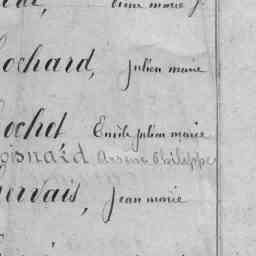 marie
ochard, Julien marie
ochet Emile Julien marie
oisnard Arsene Philippe
ervais, Jean marie